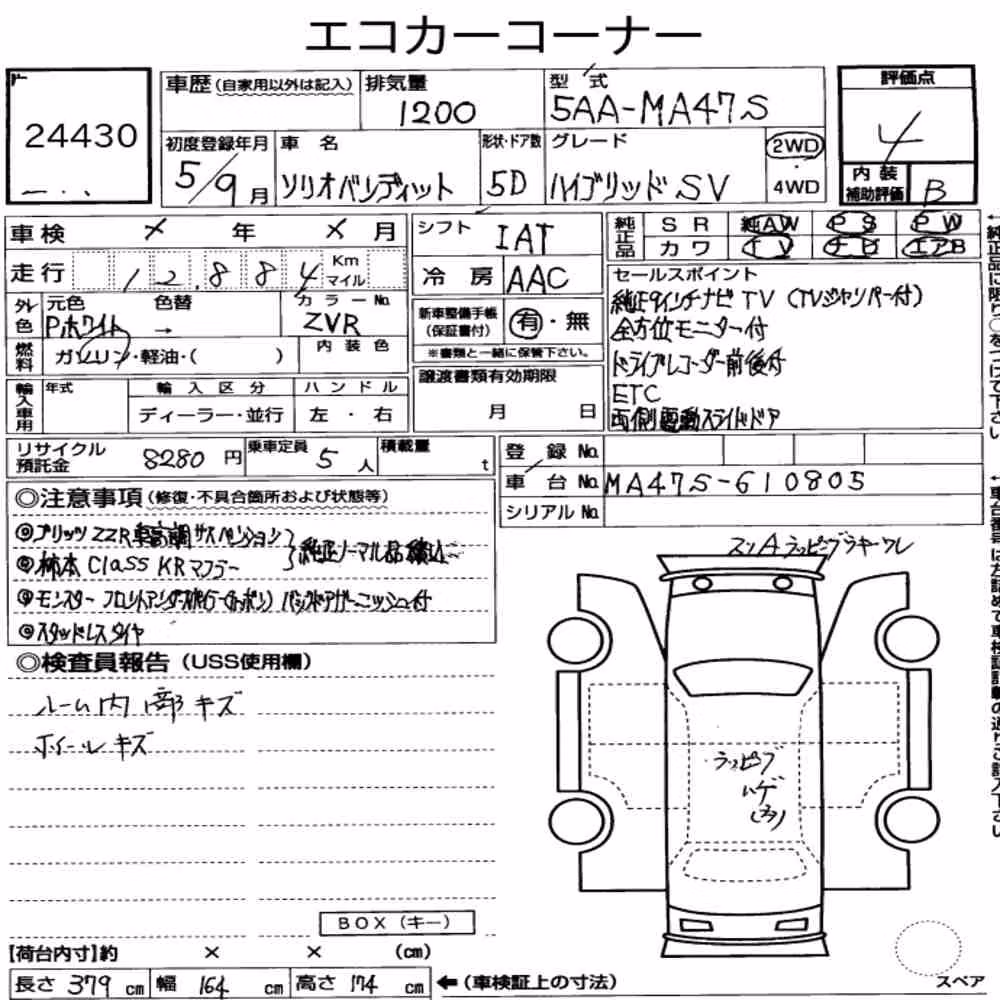 エコカーコーナー
24430
車歴 (自家用以外は記入) 排気量 1200 型式 5AA-MA47S
初度登録年月 5/9月 車名 ソリオバンディット 形状・ドア数 5D グレード ハイブリッド SV 2WD 4WD
評価点 4
内装補助評価 B
車検 × 年 × 月
走行 12,884 Km マイル
シフト IAT
冷房 AAC
純正品 SR 純AW PS PW
カワ TV ナビ エアB
外色 元色 Pホワイト 色替 → カラーNo. ZVR
燃料 ガソリン・軽油・( ) 内装色
新車整備手帳(保証書付) 有・無
※書類と一緒に保管下さい。
輸入車用 年式 輸入区分 ハンドル
ディーラー・並行 左・右
譲渡書類有効期限
月 日
セールスポイント
純正9インチナビ TV (TVジャンパー付)
全方位モニター付
ドライブレコーダー前後付
ETC
両側電動スライドドア
リサイクル預託金 8280 円 乗車定員 5 人 積載量 t
登録 No.
車台 No. MA47S-610805
シリアル No.
◎注意事項 (修復・不具合箇所および状態等)
◎ブリッツ ZZR 車高調サスペンション
◎柿本 Class KR マフラー
純正ノーマル品積込
◎モンスター フロントアンダースポイラー(カーボン) バックドアガーニッシュ付
◎スタッドレスタイヤ
◎検査員報告 (USS使用欄)
ルーム内部キズ
ホイールキズ
BOX (キー)
ラッピング
ハゲ
スペア
【荷台内寸】約 × × (cm)
長さ 379 cm 幅 164 cm 高さ 174 cm ←(車検証上の寸法)
←純正品に限り○をつけて下さい
←車台番号は左詰めで車検証記載の通りご記入下さい